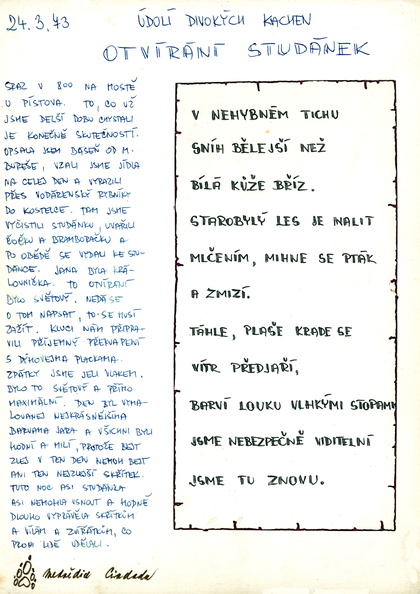 24.3.73
ÚDOLÍ DIVOKÝCH KACHEN
OTVÍRÁNÍ STUDÁNEK
SRAZ V 800 NA MOSTĚ
U PÍSTOVA. TO, CO UŽ
JSME DELŠÍ DOBU CHYSTALI
JE KONEČNĚ SKUTEČNOSTÍ.
OPSALA JSEM BÁSEŇ OD M.
BUREŠE, VZALI JSME JÍDLA
NA CELEJ DEN A VYRAZILI
PŘES VODÁRENSKÝ RYBNÍKY
DO KOSTELCE. TAM JSME
VYČISTILI STUDÁNKU, UVAŘILI
BRAMBORAČKU A
PO OBĚDĚ SE VYDALI KE STU-
DÁNCE. JANA BYLA KRÁ-
LOVNIČKA. TO OTVÍRÁNÍ
BYLO SVĚTOVÝ. NEDÁ SE
O TOM NAPSAT, TO SE MUSÍ
ZAŽÍT. KLUCI NÁM PŘIPRA-
VILI PŘÍJEMNÝ PŘEKVAPENÍ
S DÝMOVEJMA PLACKAMA.
ZPÁTKY JSME JELI VLAKEM.
BYLO TO SVĚTOVÝ A PŘÍMO
MAXIMÁLNÍ. DEN BYL VYMA-
LOVANEJ NEJKRÁSNĚJŠÍMA
BARVAMA JARA A VŠICHNI BYLI
HODNÍ A MILÍ, PROTOŽE BEJT
ZLEJ V TEN DEN NEMOH BEJT
ANI TEN NEJZLOŠÍ SKŘÍTEK.
TUTO NOC ASI STUDÁNKA
ASI NEMOHLA USNOUT A HODNĚ
DLOUHO VYPRÁVĚLA SKŘÍTKŮM
A VÍLÁM A ZVÍŘÁTKŮM, CO
PRO NI LIDÉ UDĚLALI.
V NEHYBNÉM TICHU
SNÍH BĚLEJŠÍ NEŽ
BÍLÁ KŮŽE BŘÍZ.
STAROBYLÝ LES JE NALIT
MLČENÍM, MIHNE SE PTÁK
A ZMIZÍ.
TÁHLE, PLAŠE KRADE SE
VÍTR PŘEDJAŘÍ,
BARVÍ LOUKU VLHKÝMI STOPAMI
JSME NEBEZPEČNĚ VIDITELNÍ
JSME TU ZNOVU.